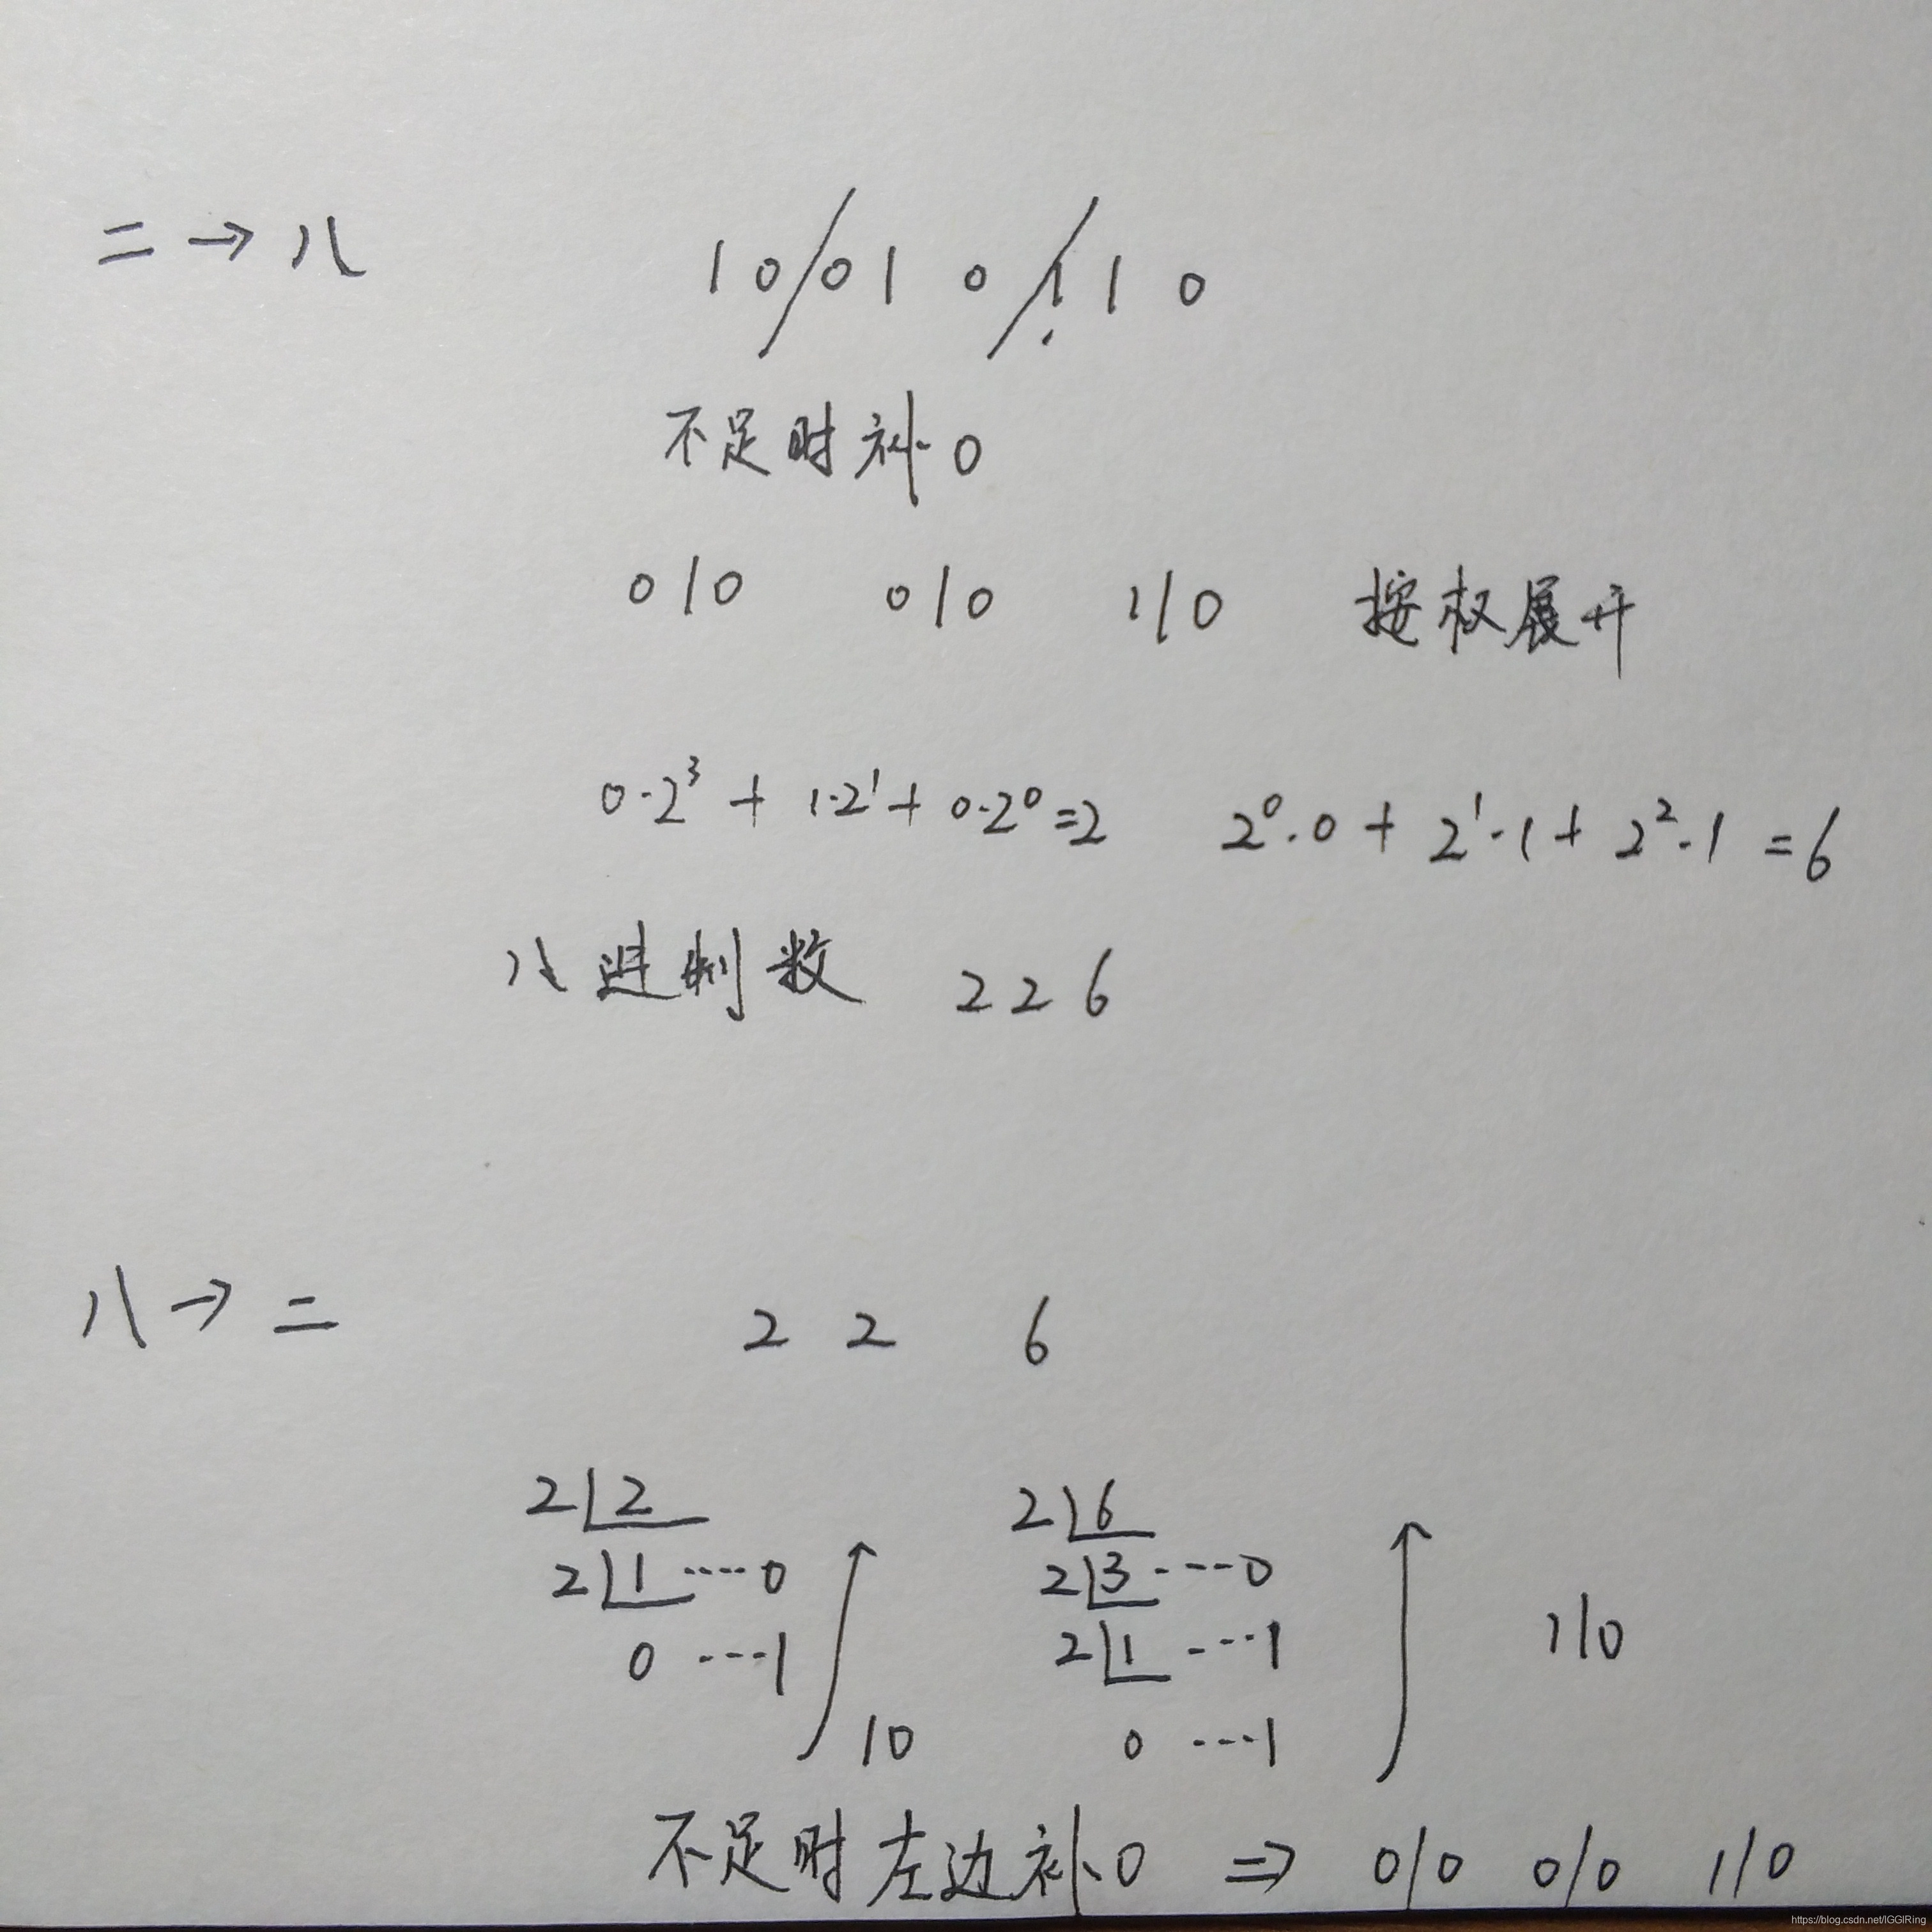 二→八 10/010/110
不足时补0
010 010 110 按权展开
0·2³ + 1·2¹ + 0·2⁰ =2 2⁰·0 + 2¹·1 + 2²·1 =6
八进制数 226
八→二 2 2 6
2|2 2|6
2|1 ····0 2|3 ----0
0 ---1 2|1 ---1 110
10 0 ---1
不足时左边补0 ⇒ 010 010 110
https://blog.csdn.net/IGGIRing